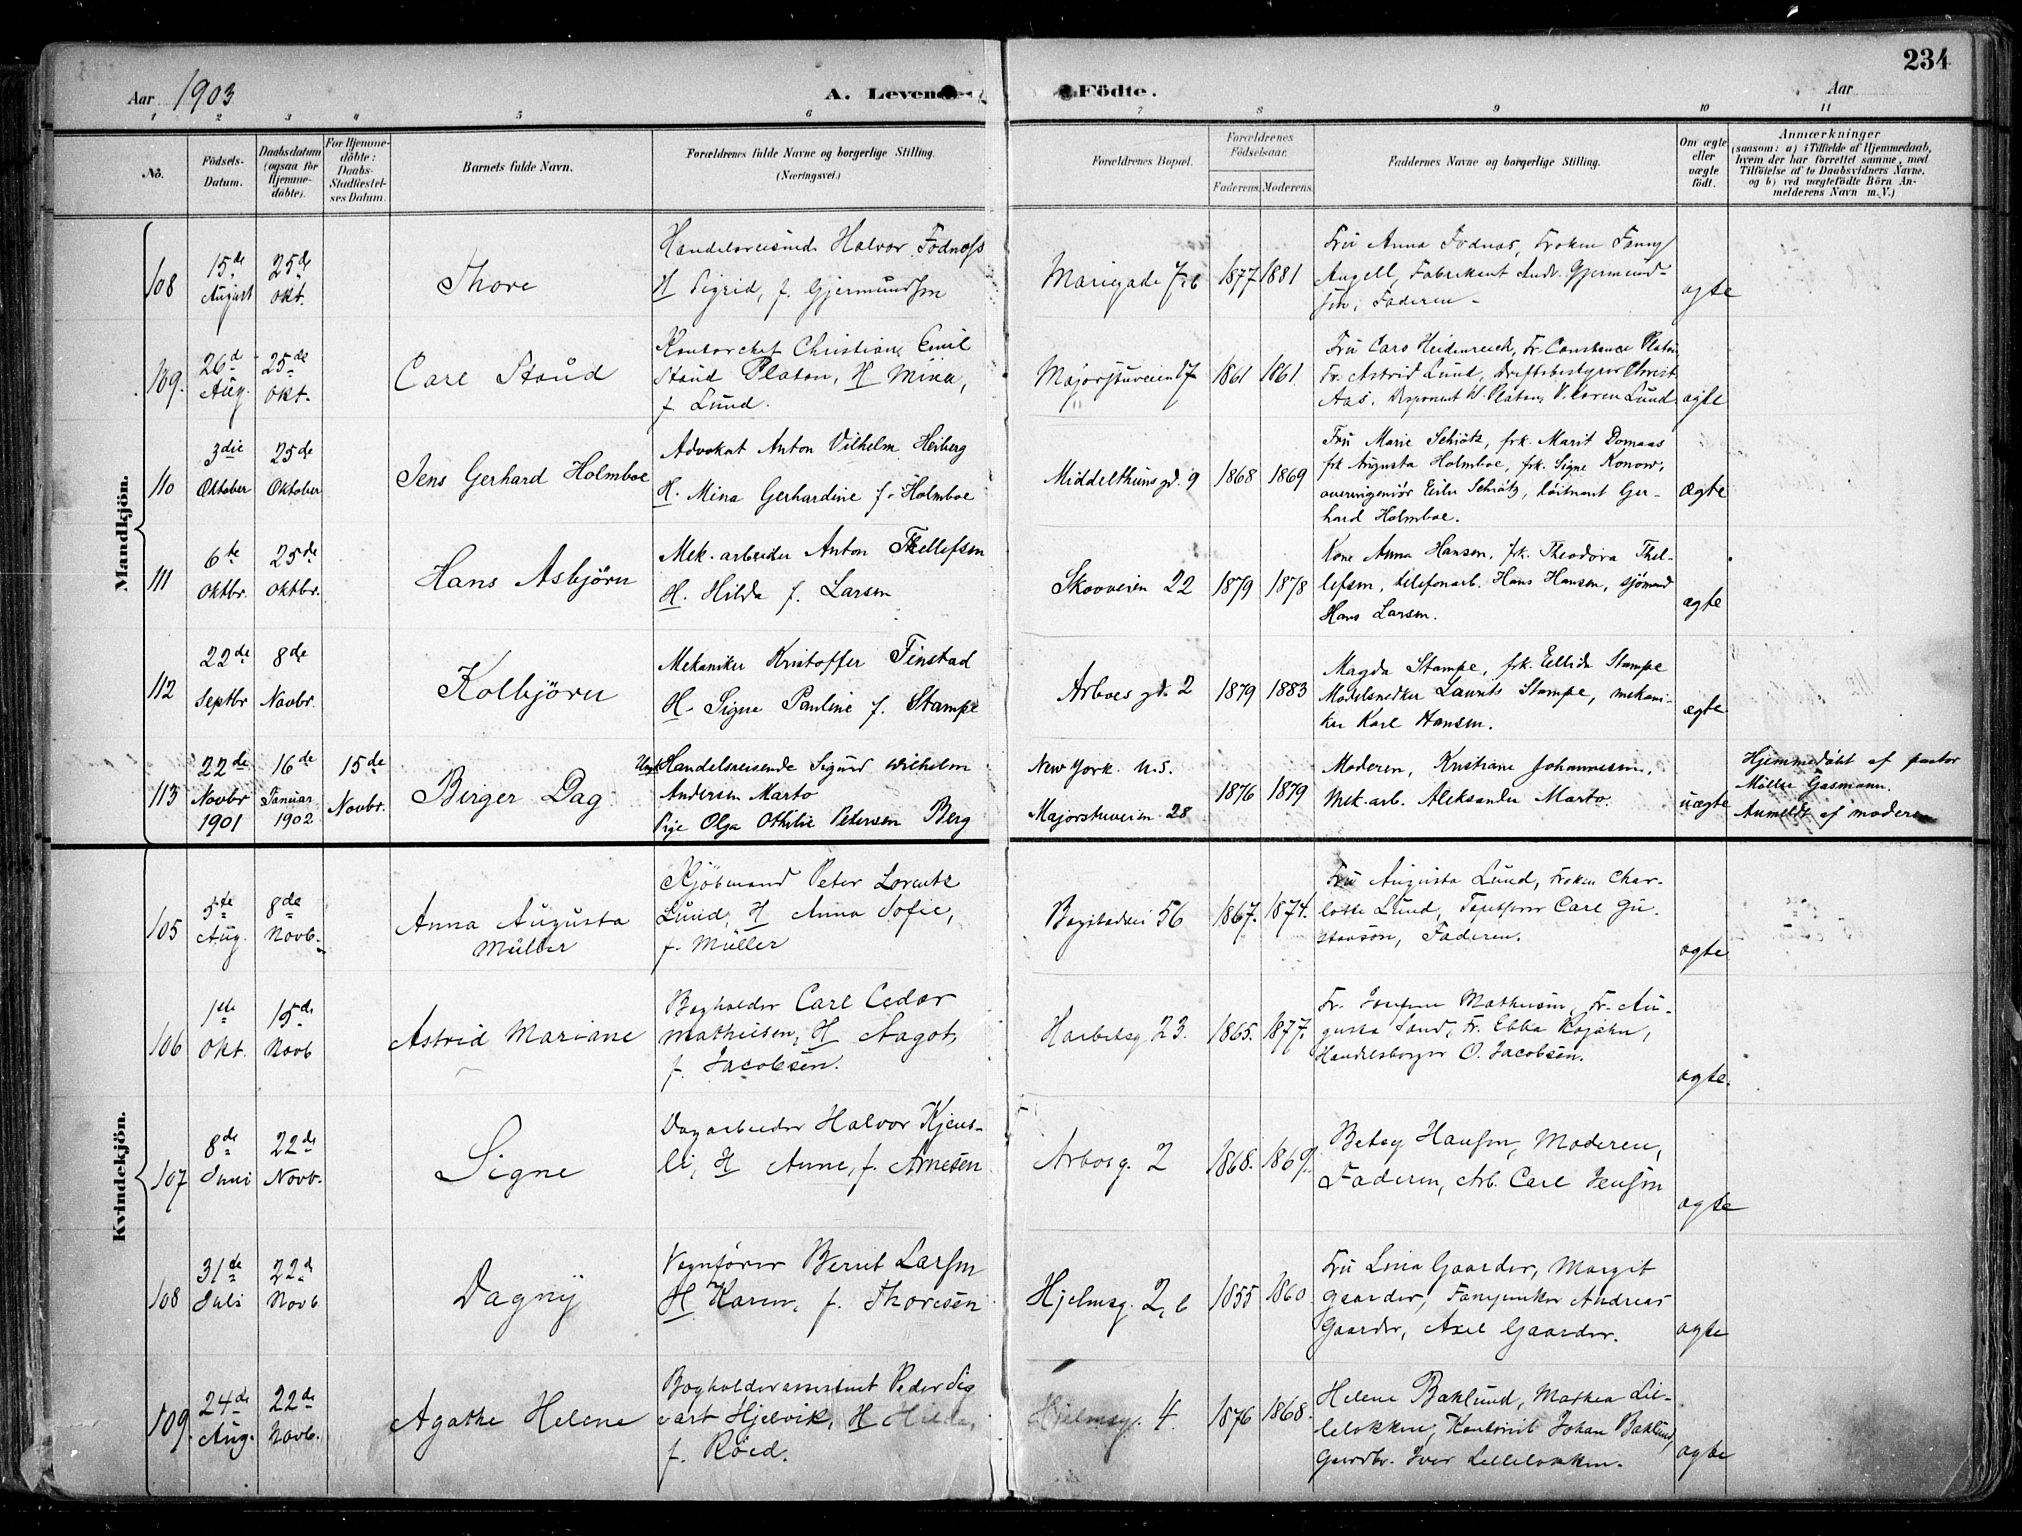 234
Aar 1903
A. Levende
Födte.
Aar
1 2 3 4 5 6 7 8 9 10 11
No.
Födsels-
Datum.
Daabsdatum
(ogsaa for
Hjemme-
döbte).
For Hjemme-
döbte:
Daabs-
Stadfæstel-
ses Datum.
Barnets fulde Navn.
Forældrenes fulde Navne og borgerlige Stilling.
(Næringsvei.)
Forældrenes Bopæl.
Forældrenes
Födselsaar.
Faderens. Moderens.
Faddernes Navne og borgerlige Stilling.
Om ægte
eller
uægte
födt.
Anmærkninger
(saasom: a) i Tilfælde af Hjemmedaab,
hvem der har forrettet samme, med
Tilföielse af to Daabsvidners Navne,
og b) ved uægtefödte Börn An-
melderens Navn m. V.)
Mandkjön.
108
15de
August
25de
Okt.
Thore
Halvor Fodnass
H Sigrid, f. Gjermundsen
Mariegade 7.b
1877 1881
Fru Anna Fodnas, Froken Fanny
Angell, Fabrikant Andr. Gjermund-
sen, Faderen.
ægte
109.
26d
Aug.
25de
Okt.
Carl Staud
Kontorchef Christian Emil
Staud Platou, H Mina,
f. Lund.
Majorstuveien 17
1861 1861.
Fru Caro Heidenreich, Fr. Constance Platou
Fr. Astrid Lund, Driftsbestyrer Christ
Aas. Disponent W. Platou, Lund.
ægte
110
3die
Oktober
25de
Oktober
Jens Gerhard Holmboe
Advokat Anton Vilhelm Heiberg
H. Mina Gerhardine f. Holmboe
Middelthunsgd. 9
1868 1869
Fru Marie Schiötz, frk. Marit Domaas
frk Augusta Holmboe, frk. Signe Konow,
overingeniör Eiler Schiötz, löitnant Ger-
hard Holmboe.
Ægte
111
6te
Oktbr.
25de
Oktbr.
Hans Asbjörn
Mek. arbeider Anton Thellefsen
H. Hilda f. Larsen
Skovveien 22
1879 1878
Kone Anna Hansen, frk. Theodora Thel-
lefsen, telefonarb. Hans Hansen, sjömand
Hans Larsen.
ægte
112
22de
Septbr
8de
Novbr.
Kolbjörn
Mekaniker Kristoffer Finstad
H. Signe Pauline f. Stampe
Arboes gd. 2
1879 1883
Magda Stampe, frk. Ellida Stampe
Modelsnedker Laurits Stampe, mekani-
ker Karl Hansen.
ægte
113
22de
Novbr
1901
16de
Januar
1902
15de
Novbr.
Birger Dag
Ungk. Handelsreisende Sigurd Wilhelm
Andersen Marto
Pige Olga Othilie Petersen Berg
New York. U.S.
Majorstuveien 28
1876 1879
Moderen, Kristiane Johannesen,
Mek. arb. Aleksander Marto.
uægte
Hjemmedöbt af pastor
Möller Gasmann.
Anmeldt af moderen
Kvindekjön.
105
5te
Aug.
8de
Novb.
Anna Augusta
Müller
Kjöbmand Peter Lorentz
Lund, H Anna Sofie,
f. Müller
Bogstadvei 56
1867. 1874.
Fru Augusta Lund, Froken Char-
lotte Lund, Carl Gu-
stavson, Faderen.
ægte
106
1ste
Okt.
15de
Novb
Astrid Mariane
Bogholder Carl Cedar
Mathiesen, H Aagot,
f. Jacobsen.
23.
1865. 1877.
Fr. Mathiesen, Fr. Au-
gusta Sand, Fr. Ebba Rojahn,
Handelsborger O. Jacobsen.
ægte.
107
8de
Juni
22de
Novb.
Signe
Dagarbeider Halvor Kjens-
li, H Anne, f. Arnesen
Arbosg. 2
1868. 1869.
Betsy Hansen, Moderen,
Faderen, Arb. Carl Jensen
ægte
108
31de
Juli
22d
Novb
Dagny
Vognförer Bernt Larsen
H Karen, f. Thoresen
Hjelmsg. 2,b
1855 1860
Fru Lina Gaarder, Margit
Gaarder, Andreas
Gaarder, Axel Gaarder.
ægte
109.
24de
Aug.
22de
Novb.
Agathe Helene
Bogholderassistent Peder Sig
vart Hjelvik, H Hilda,
f. Röed.
Hjelmsg. 4.
1876 1868.
Helene Baklund, Mathea Lil-
lelokken, Kontorist Johan Baklund,
Gaardbr. Iver Lillelokken.
ægte